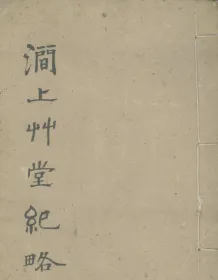 澗上艸堂紀略